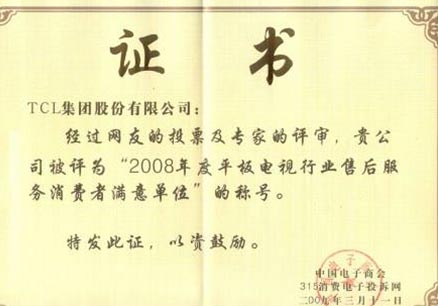 证书
TCL集团股份有限公司：
经过网友的投票及专家的评审，贵公
司被评为“2008年度平板电视行业售后服
务消费者满意单位”的称号。
特发此证，以资鼓励。
中国电子商会
315消费电子投诉网
二00九年三月十一日